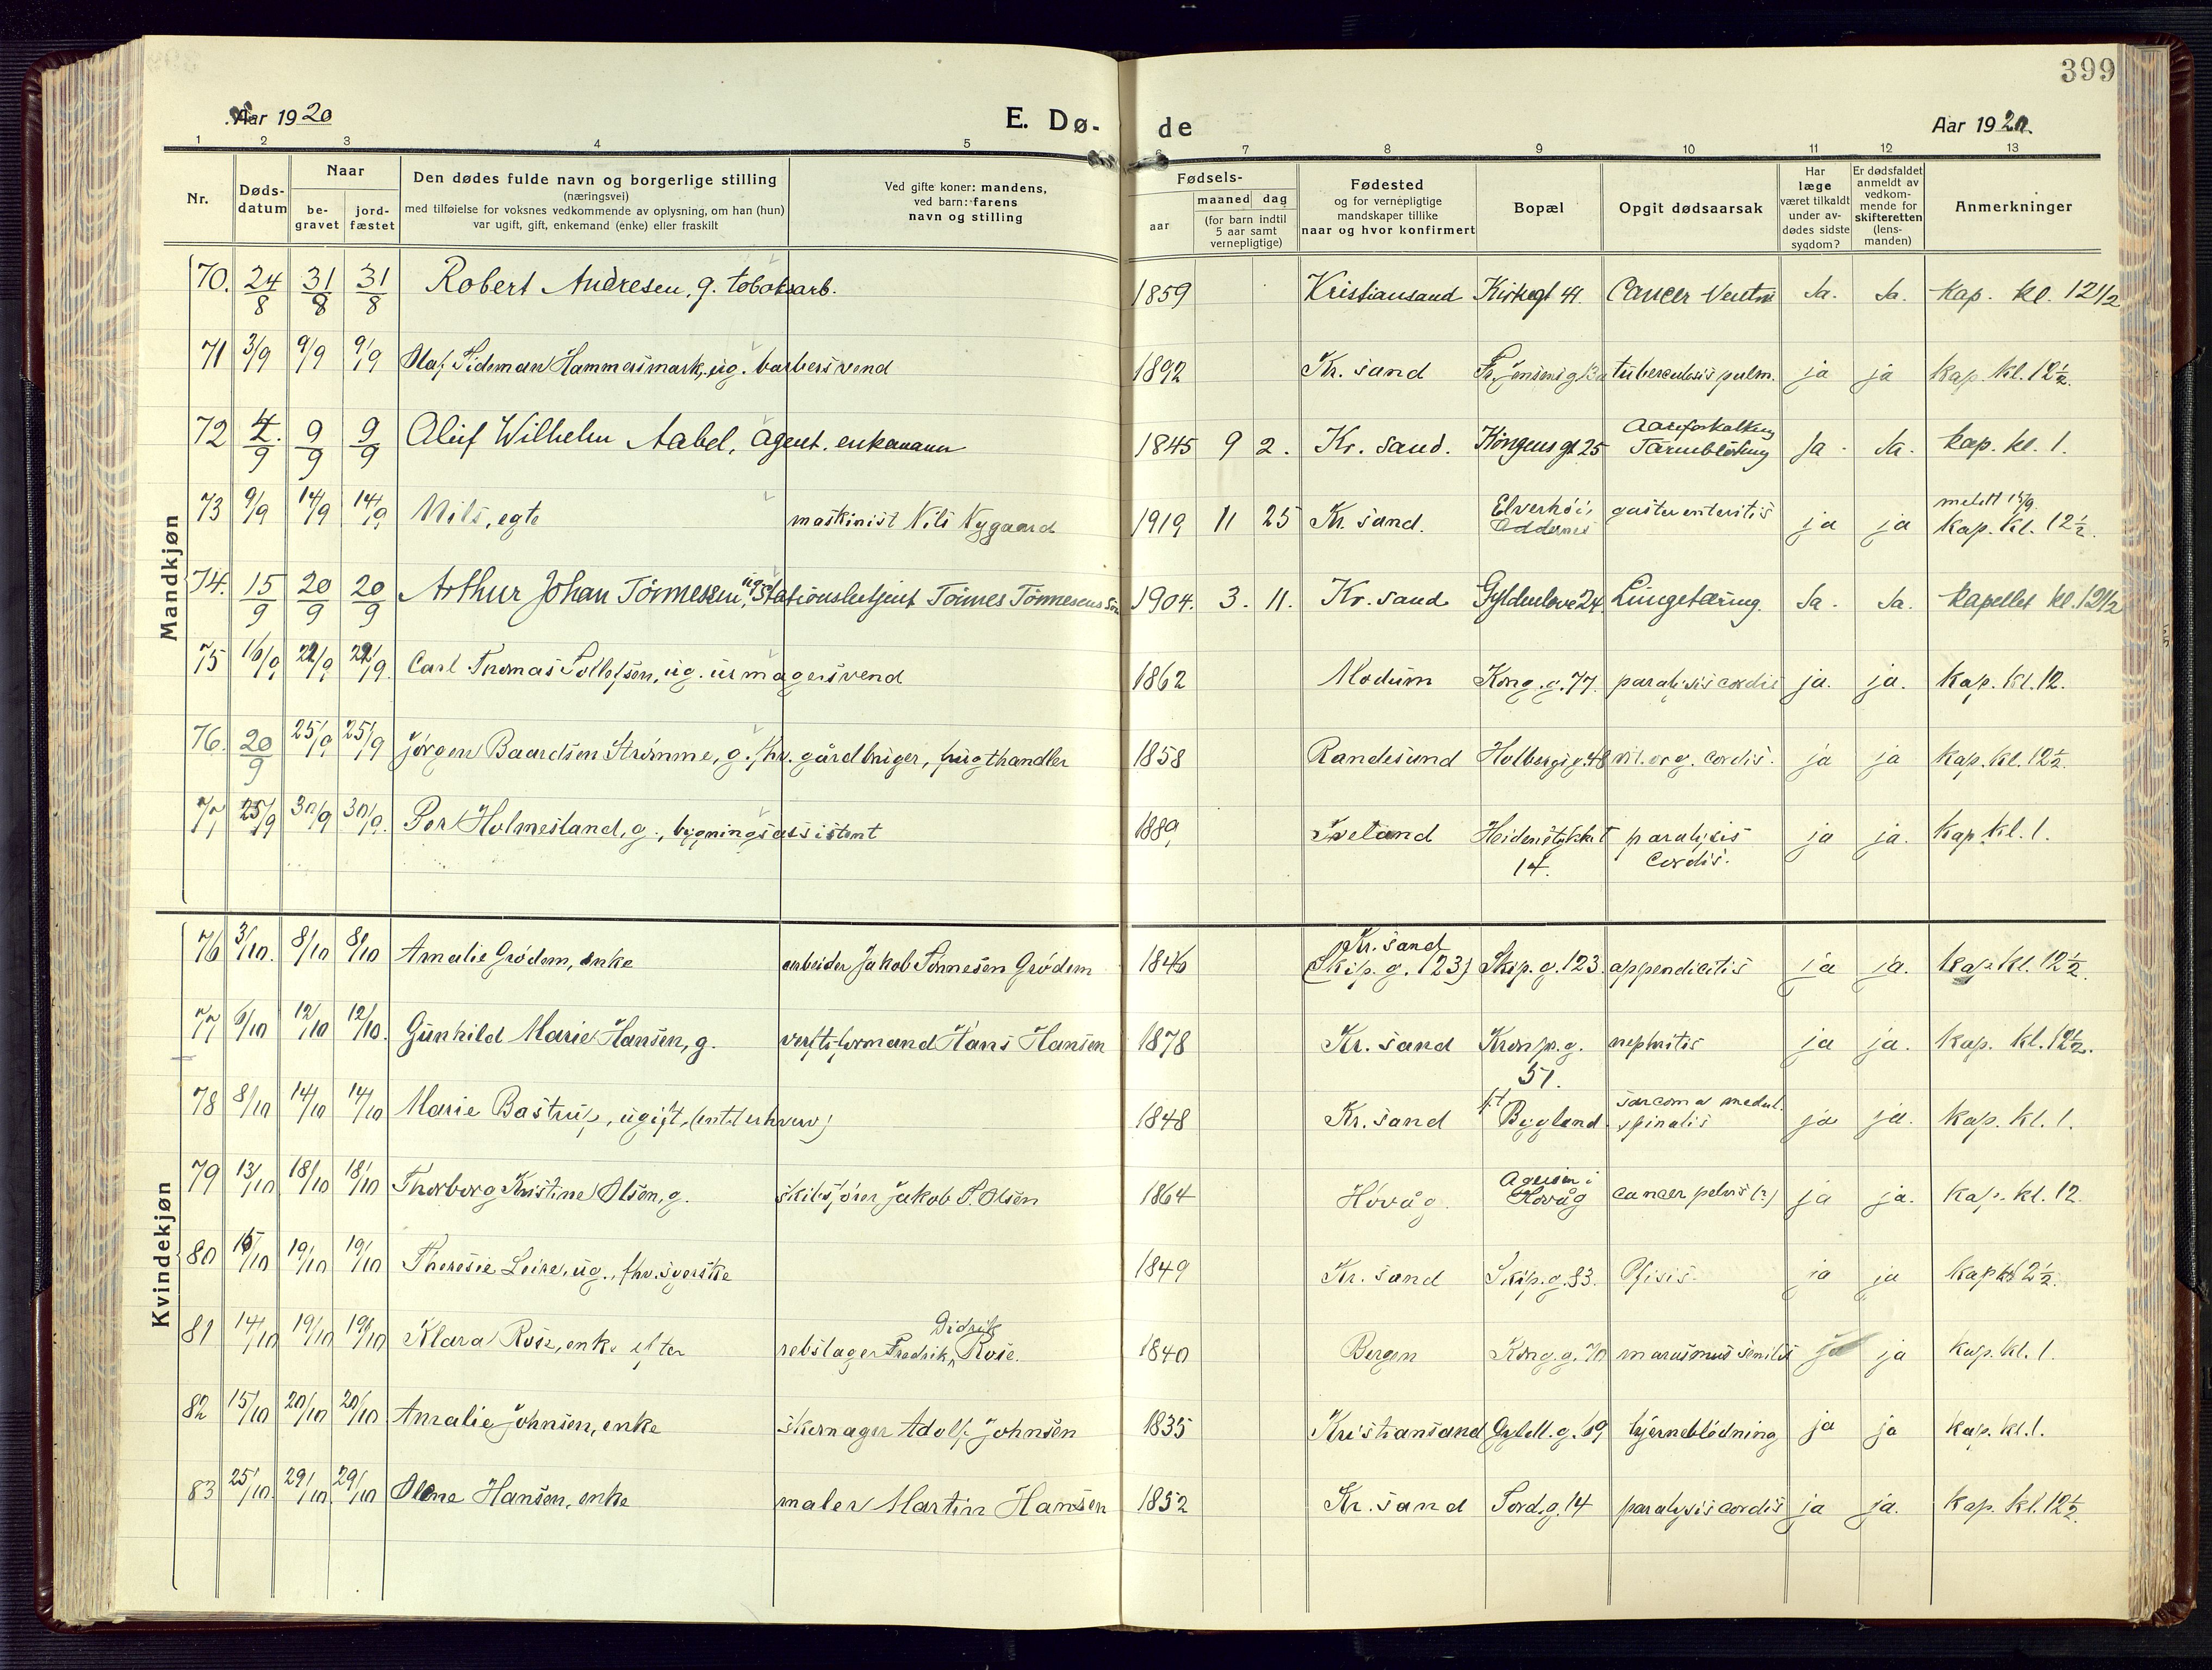 399
Aar 1920 E. Dø- de Aar 1920.
1 2 3 4 5 6 7 8 9 10 11 12 13
Nr. Døds-datum Naar be-gravet jord-fæstet Den dødes fulde navn og borgerlige stilling (næringsvei) med tilføielse for voksnes vedkommende av oplysning, om han (hun) var ugift, gift, enkemand (enke) eller fraskilt Ved gifte koner: mandens, ved barn: farens navn og stilling Fødsels- aar maaned dag (for barn indtil 5 aar samt vernepligtige) Fødested og for vernepligtige mandskaper tillike naar og hvor konfirmert Bopæl Opgit dødsaarsak Har læge været tilkaldt under av-dødes sidste sygdom? Er dødsfaldet anmeldt av vedkom-mende for skifteretten (lens-manden) Anmerkninger
Mandkjøn
70. 24/8 31/8 31/8 Robert Andresen, g. tobaksarb. 1859 Kristiansand Kirkegt 44 Cancer Ventri Ja. Ja. Kap. kl. 12 1/2
71 3/9 9/9 9/9 Olaf Tideman Hammersmark, ug. barbersvend 1892 Kr. sand tuberculosis pulm. ja ja Kap. kl. 12 1/2.
72 4/9 9/9 9/9 Oluf Wilhelm Aabel, Agent. enkemann 1845 9 2. Kr. sand. Kongens gt 25 Aareforkalkning Tarmblödning Ja. Ja. Kap. kl. 1.
73 9/9 14/9 14/9 Nils, egte maskinist Nils Nygaard 1919 11 25 Kr. sand. Elverhöi, Oddernes gastroenteritis ja ja meldt Kap. kl. 12 1/2.
74. 15/9 20/9 20/9 Arthur Johan Tönnesen, ug. Stationsbetjent Tönnes Tönnesens Sön 1904. 3. 11. Kr. sand Gyldenlöve 24 Lungetæring. Ja. Ja. Kapellet kl. 12 1/2
75 16/9 22/9 22/9 Carl Thomas Tollefsen, ug. urmagersvend 1862 Modum Kong. g. 77. paralysis cordis ja. ja. Kap. kl. 12.
76. 20/9 25/9 25/9 Jørgen Baardsen Strømme, g. fhv. gårdbruger, frugthandler 1858 Randesund Holbergs g. 48 vit. org. cordis. ja ja Kap. kl. 12 1/2.
77 25/9 30/9 30/9 Per Holmesland, g., bygningsassistent 1889 Iveland 14. paralysis cordis. ja ja. Kap. kl. 1.
Kvindekjøn
76 3/10. 8/10 8/10 Amalie Grødem, enke arbeider Jakob Tønnesen Grødem 1846 Kr. sand (Skip. g. 123) Skip. g. 123. appendicitis ja ja. Kap. kl. 12 1/2.
77 6/10 12/10 12/10. Gunhild Marie Hansen, g. verftsformand Hans Hansen 1878 Kr. sand Kronp. g. 51. nephritis ja ja. Kap. kl. 12 1/2.
78 8/10 14/10 14/10 Marie Bastrup, ugift, (intet erhverv) 1848 Kr. sand Bygland sarcoma medul. spinalis ja ja. Kap. kl. 1.
79 13/10 18/10 18/10 Thorborg Kristine Olsen, g. skibsfører Jakob T. Olsen 1864 Høvåg. Høvåg cancer pelvis (?) ja ja. Kap. kl. 12.
80 15/10 19/10 19/10 Theresie Leire, ug., fhv. syerske 1849 Kr. sand Skip. g. 83. Ftisis. ja ja Kap kl 12 1/2.
81 14/10 19/10 19/10 Klara Rose, enke efter rebslager Fredrik Didrik Rose. 1840 Bergen Kong. g. 70 marasmus senilis ja ja Kap. kl. 1.
82 15/10 20/10 20/10 Amalie Johnsen, enke skomager Adolf Johnsen 1835 Kristiansand Gyldl. g. 69 hjerneblödning ja ja Kap. kl. 1.
83 25/10. 29/10. 29/10 Olene Hansen, enke maler Martin Hansen 1852 Kr. sand Tord. g. 14 paralysis cordis ja ja. Kap. kl. 12 1/2.